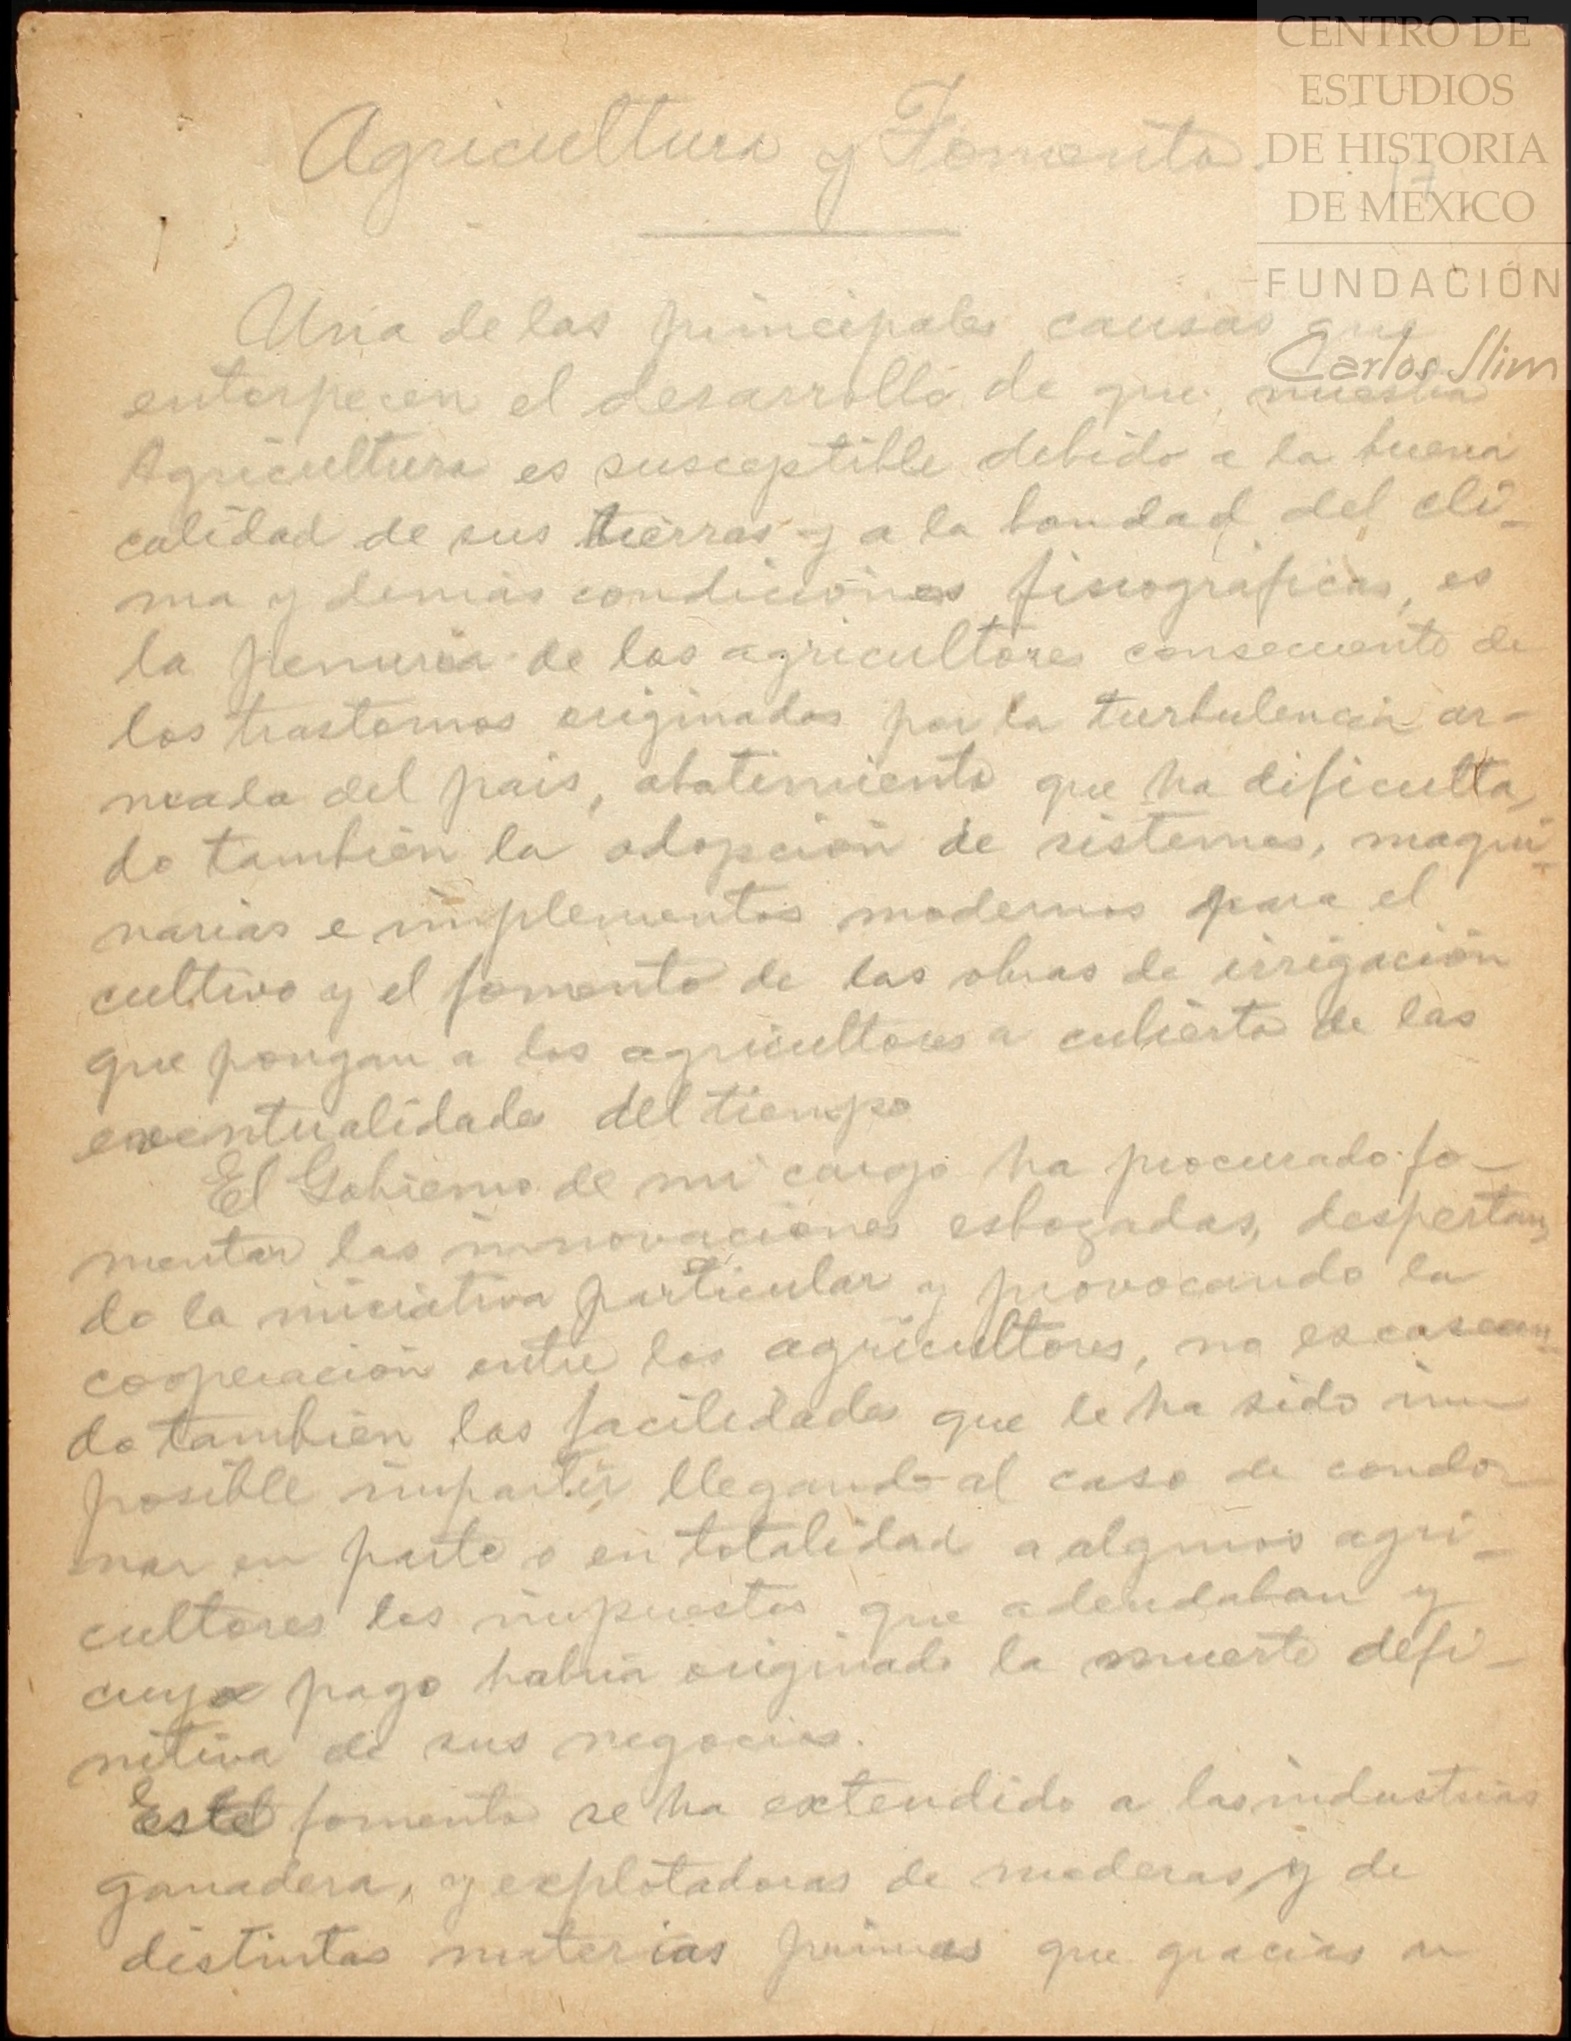 CENTRO DE
ESTUDIOS
DE HISTORIA
DE MÉXICO
FUNDACIÓN
Carlos Slim
17
Agricultura y Fomento.
Una de las principales causas que
entorpecen el desarrollo de que nuestra
Agricultura es susceptible debido a la buena
calidad de sus tierras y a la bondad del cli-
ma y demás condiciones fisiográficas, es
la penuria de los agricultores consecuente de
los trastornos originados por la turbulencia ar-
mada del pais, abatimiento que ha dificulta-
do también la adopción de sistemas, maqui-
narias e implementos modernos para el
cultivo y el fomento de las obras de irrigación
que pongan a los agricultores a cubierto de las
eventualidades del tiempo
El Gobierno de mi cargo ha procurado fo-
mentar las innovaciones esbozadas, despertan-
do la iniciativa particular y provocando la
cooperación entre los agricultores, no escasean-
do también las facilidades que le ha sido
posible impartir llegando al caso de condo-
nar en parte o en totalidad a algunos agri-
cultores los impuestos que adeudaban y
cuyo pago habría originado la muerte defi-
nitiva de sus negocios.
Este fomento se ha extendido a las industrias
ganadera, y explotadoras de maderas y de
distintas materias primas que gracias a